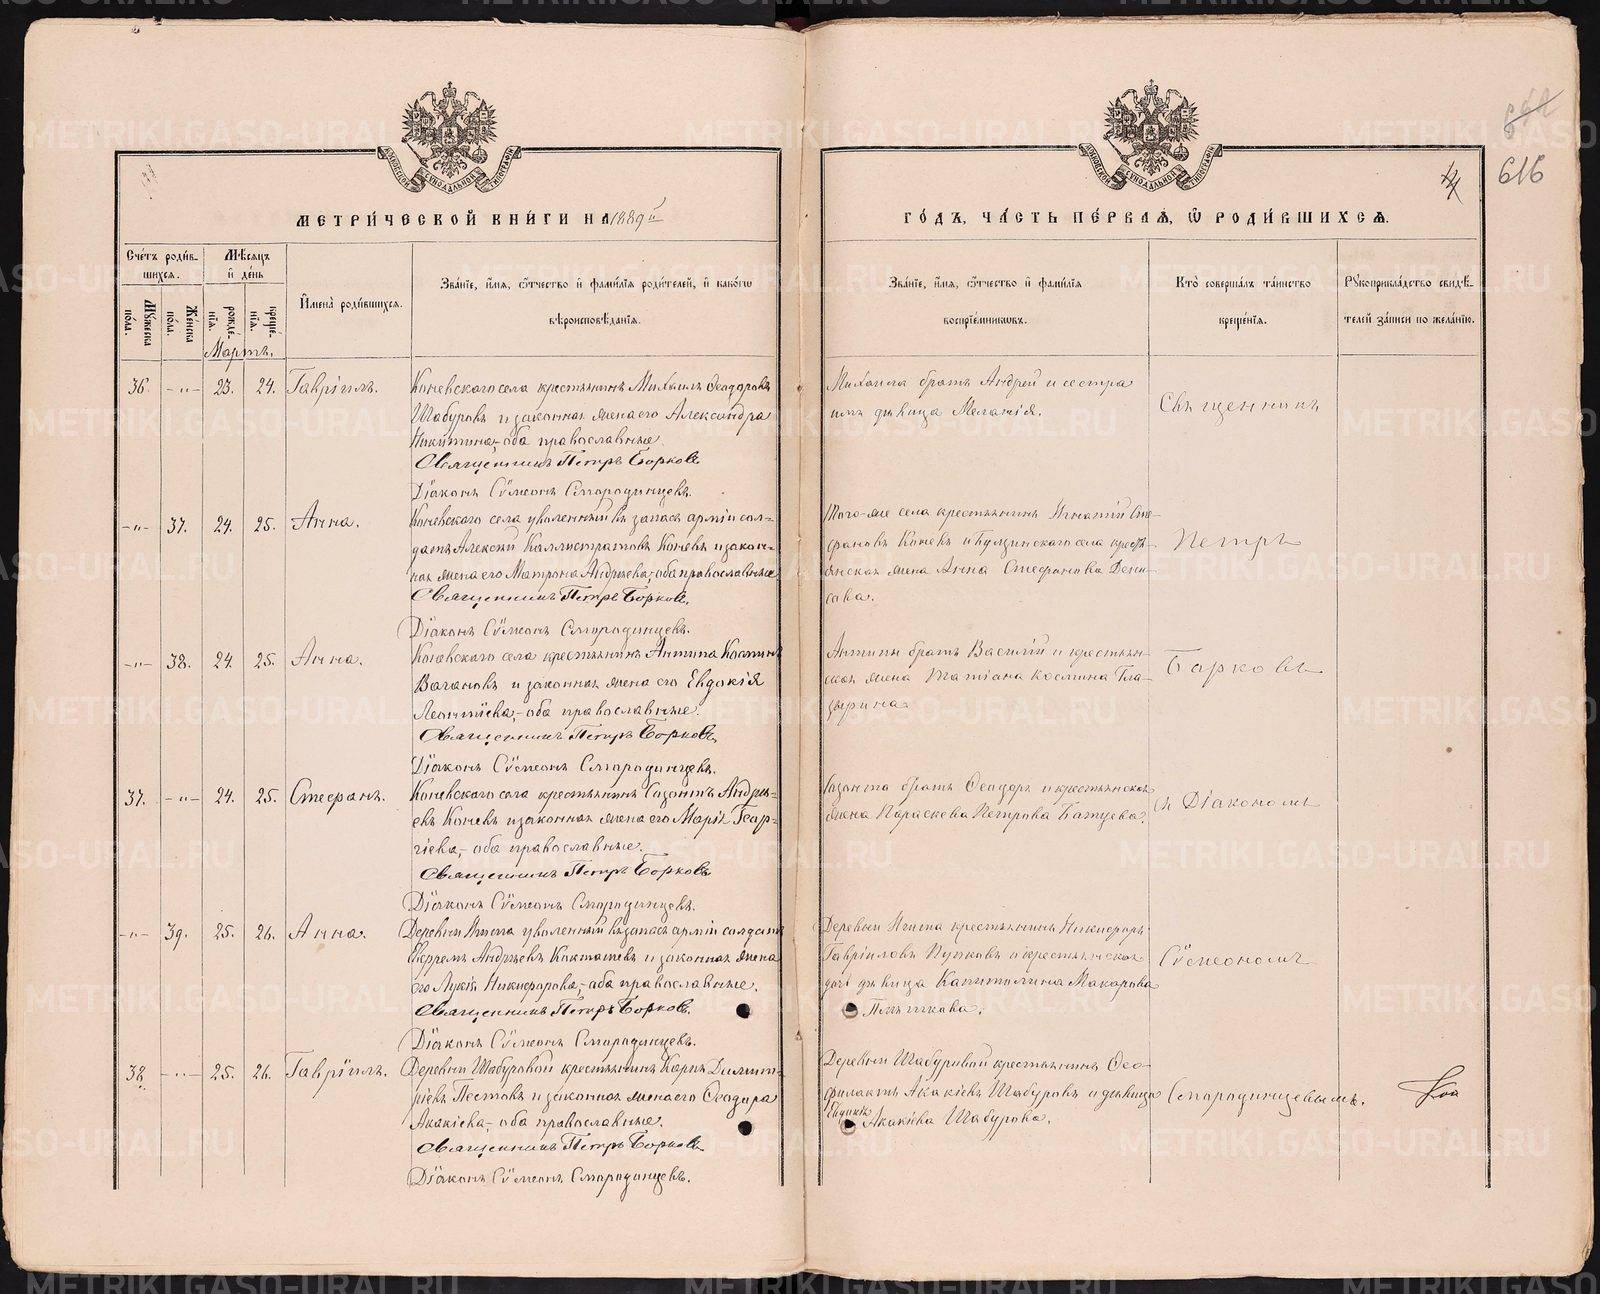 616
14
МЕТРИ́ЧЕСКОЙ КНИ́ГИ НА 1889 й
ГО́ДЪ, ЧА́СТЬ ПЕ́РВАѦ, Ѽ РОДИ́ВШИХСѦ.
Сче́тъ роди́в-
шихсѧ.
Мѣ́сѧцъ
и҆ де́нь
Му́жеска по́ла.
Же́нска по́ла.
рожде́-нїѧ.
креще́-нїѧ.
И҆мена̀ роди́вшихсѧ.
Зва́нїе, и҆́мѧ, ѻ҆́тчество и҆ фами́лїѧ роди́телей, и҆ како́гѡ
вѣроисповѣ́данїѧ.
Зва́нїе, и҆́мѧ, ѻ҆́тчество и҆ фами́лїѧ
воспрїе́мникѡвъ.
Кто̀ соверша́лъ та́инство
креще́нїѧ.
Рꙋкоприкла́дство свидѣ́-
телей за́писи по жела́нїю.
Мартъ.
36. -„- 23. 24. Гавріилъ.
Коневскаго села крестьянинъ Михаилъ Ѳеодоровъ
Шабуровъ и законная жена его Александра
Никитина,-оба православные.
Священникъ Петръ Борковъ
Діаконъ Сѵмеонъ Смородинцевъ.
Михаила братъ Андрей и сестра
имъ дѣвица Меланія.
Священникъ
-„- 37. 24. 25. Анна.
Коневскаго села уволенный въ запасъ арміи сол-
датъ Алексій Каллистратовъ Коневъ и закон-
ная жена его Матрона Андреева,-оба православные
Священникъ Петръ Борковъ.
Діаконъ Сѵмеонъ Смородинцевъ.
Того-же села крестьянинъ Игнатій Сте-
фановъ Коневъ и Булзинскаго села кресть-
янская жена Анна Стефанова Дени-
сова.
Петръ
-„- 38. 24. 25. Анна.
Коневскаго села крестьянинъ Антипа Косминъ
Вагановъ и законная жена его Евдокія
Леонтіева,-оба православные.
Священникъ Петръ Борковъ
Діаконъ Сѵмеонъ Смородинцевъ.
Антипы братъ Василій и крестьян-
ская жена Татіана Космина Гла-
зырина.
Борковъ
37. -„- 24. 25. Стефанъ.
Коневскаго села крестьянинъ Созонтъ Андре-
евъ Коневъ и законная жена его Марія Геор-
гіева,-оба православные.
Священникъ Петръ Борковъ
Діаконъ Сѵмеонъ Смородинцевъ.
Созонта братъ Ѳеодоръ и крестьянская
жена Параскева Петрова
съ Діакономъ
-„- 39. 25. 26. Анна.
Деревни Игиша уволенный въ запасъ арміи солдатъ
Ефремъ Андреевъ и законная жена
его Лукія Никифорова,-оба православные.
Священникъ Петръ Борковъ.
Діаконъ Сѵмеонъ Смородинцевъ.
Деревни Игиша крестьянинъ Никифоръ
Гавріиловъ Пупковъ и крестьянская
дочь дѣвица Капитолина Макарова
Сѵмеономъ
38. -„- 25. 26. Гавріилъ.
Деревни Шабуровой крестьянинъ Карпъ Димит-
ріевъ Пестовъ и законная жена его Ѳеодора
Акакіева,-оба православные.
Священникъ Петръ Борковъ
Діаконъ Сѵмеонъ Смородинцевъ.
Деревни Шабуровой крестьянинъ Ѳео-
филактъ Акакіевъ Шабуровъ и дѣвица
Акакіева Шабурова.
Смородинцевымъ.
METRIKI.GASO-URAL.RU